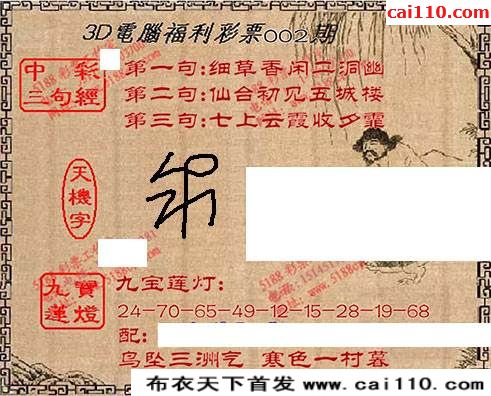 cai110.com
3D電腦福利彩票002期
中彩
三句經
第一句:细草香闲二洞幽
第二句:仙台初见五城楼
第三句:七上云霞收夕霏
天機字
九寳
蓮燈
九宝莲灯:
24-70-65-49-12-15-28-19-68
配:
鸟坠三洲气 寒色一村暮
布衣天下首发 www.cai110.com